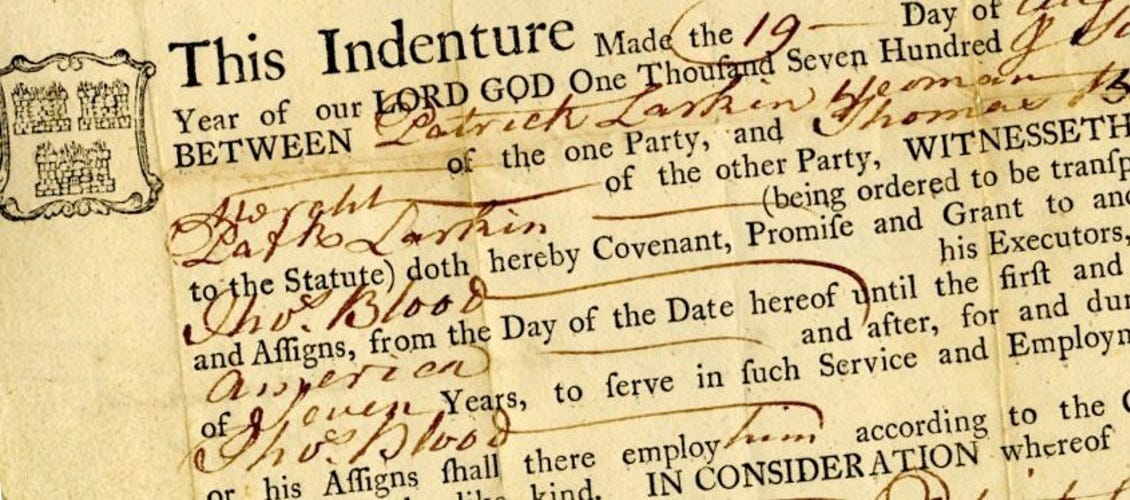 This Indenture Made the 19 Day of
Year of our LORD GOD One Thouſand Seven Hundred
BETWEEN Patrick Larkin Yeoman
of the one Party, and Thomas
of the other Party, WITNESSETH
Patk Larkin (being ordered to be tranſp
to the Statute) doth hereby Covenant, Promiſe and Grant to and
Thos. Blood his Executors,
and Aſſigns, from the Day of the Date hereof until the firſt and
America and after, for and dur
of Seven Years, to ſerve in ſuch Service and Employm
Thos. Blood
or his Aſſigns ſhall there employ him according to the C
like kind. IN CONSIDERATION whereof